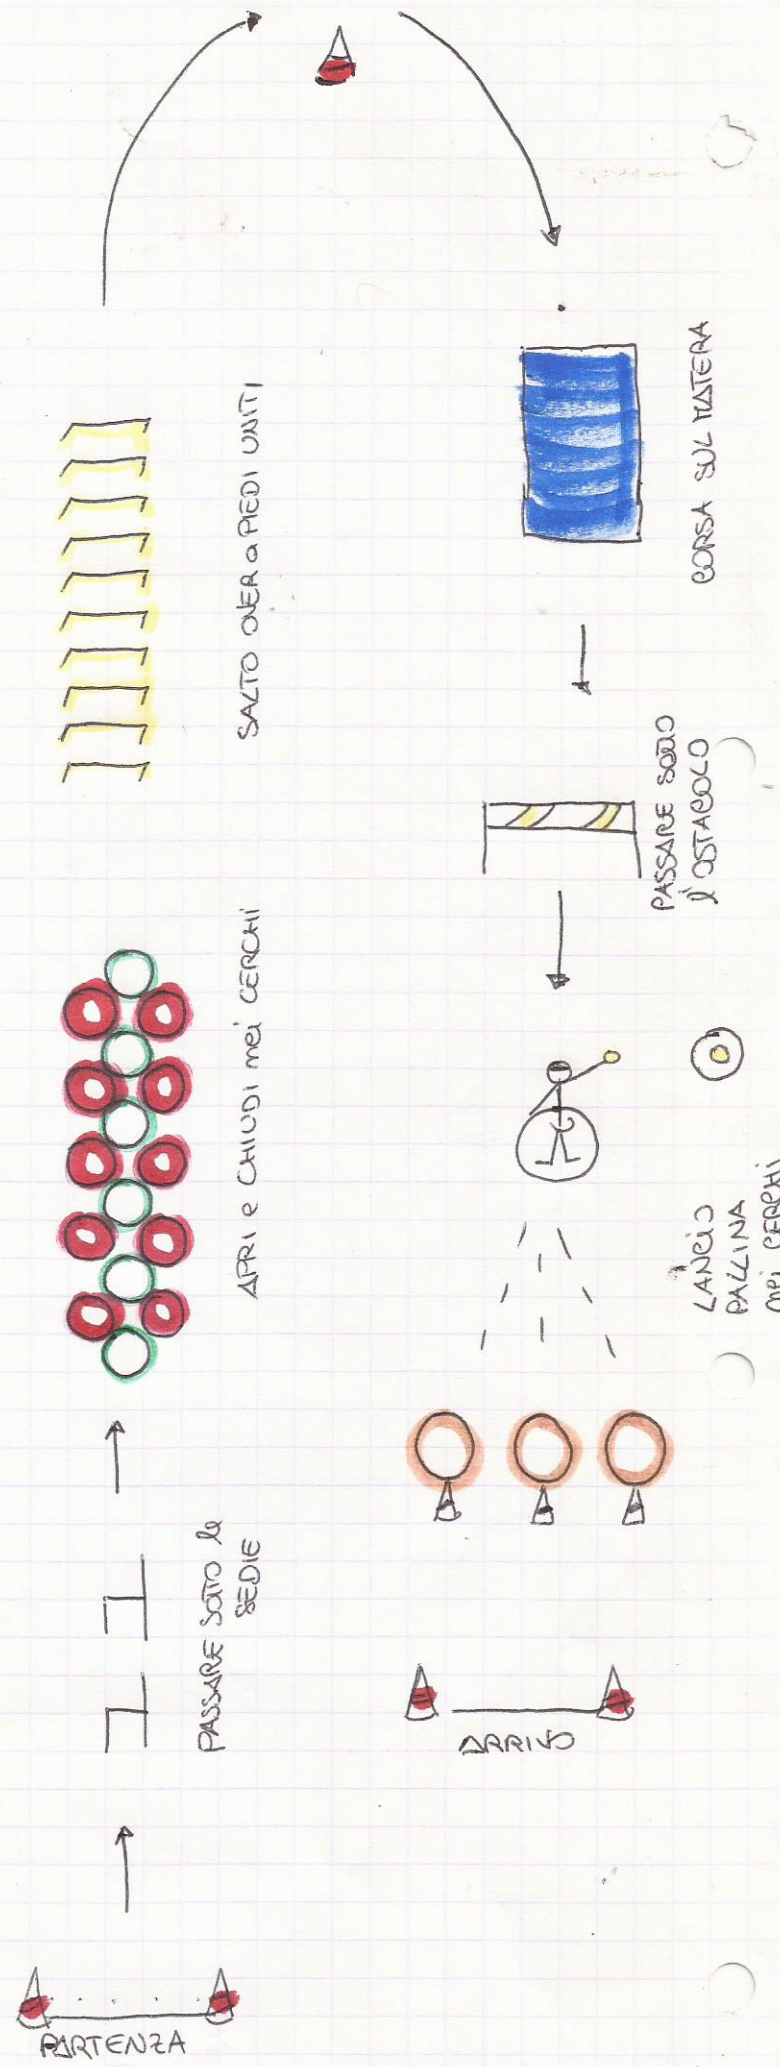 PARTENZA
PASSARE SOTTO le
SEDIE
APRI e CHIUDI nei CERCHI
SALTO OVER a PIEDI UNITI
CORSA SUL MATERA
PASSARE SOTTO
l'OSTACOLO
LANCIO
PALLINA
nei CERCHI
ARRIVO